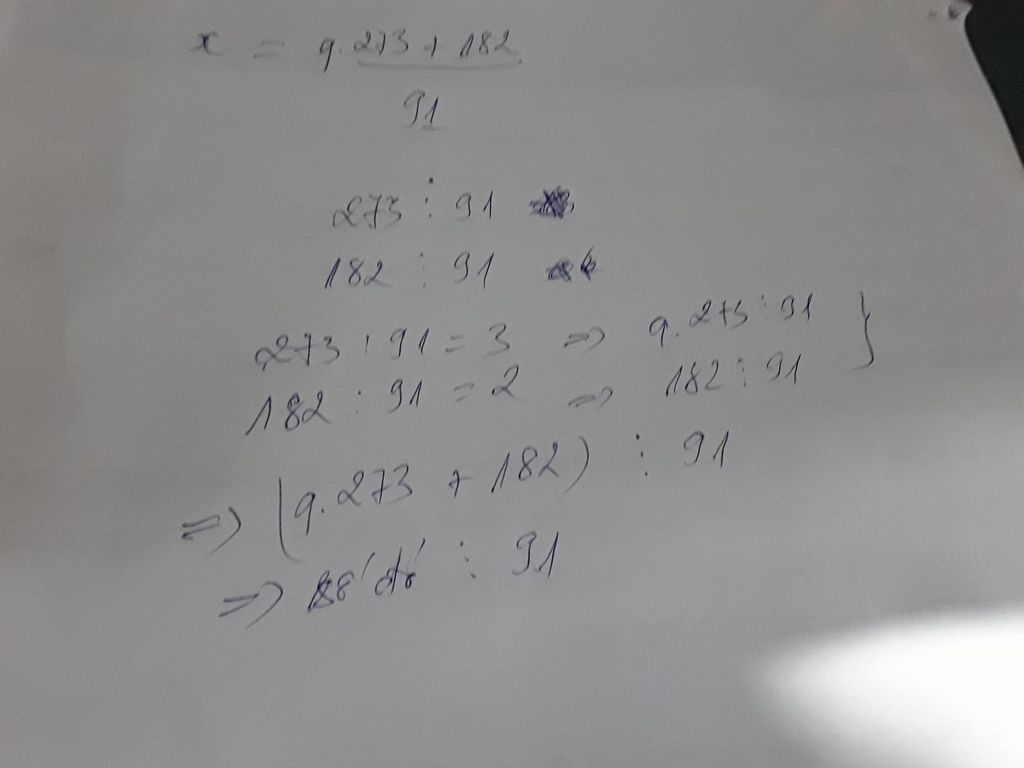 x = q.273 + 182
91
273 ⋮ 91
182 ⋮ 91
273 : 91 = 3 => q.273 ⋮ 91 }
182 : 91 = 2 => 182 ⋮ 91
=> (q.273 + 182) ⋮ 91
=> số đó ⋮ 91